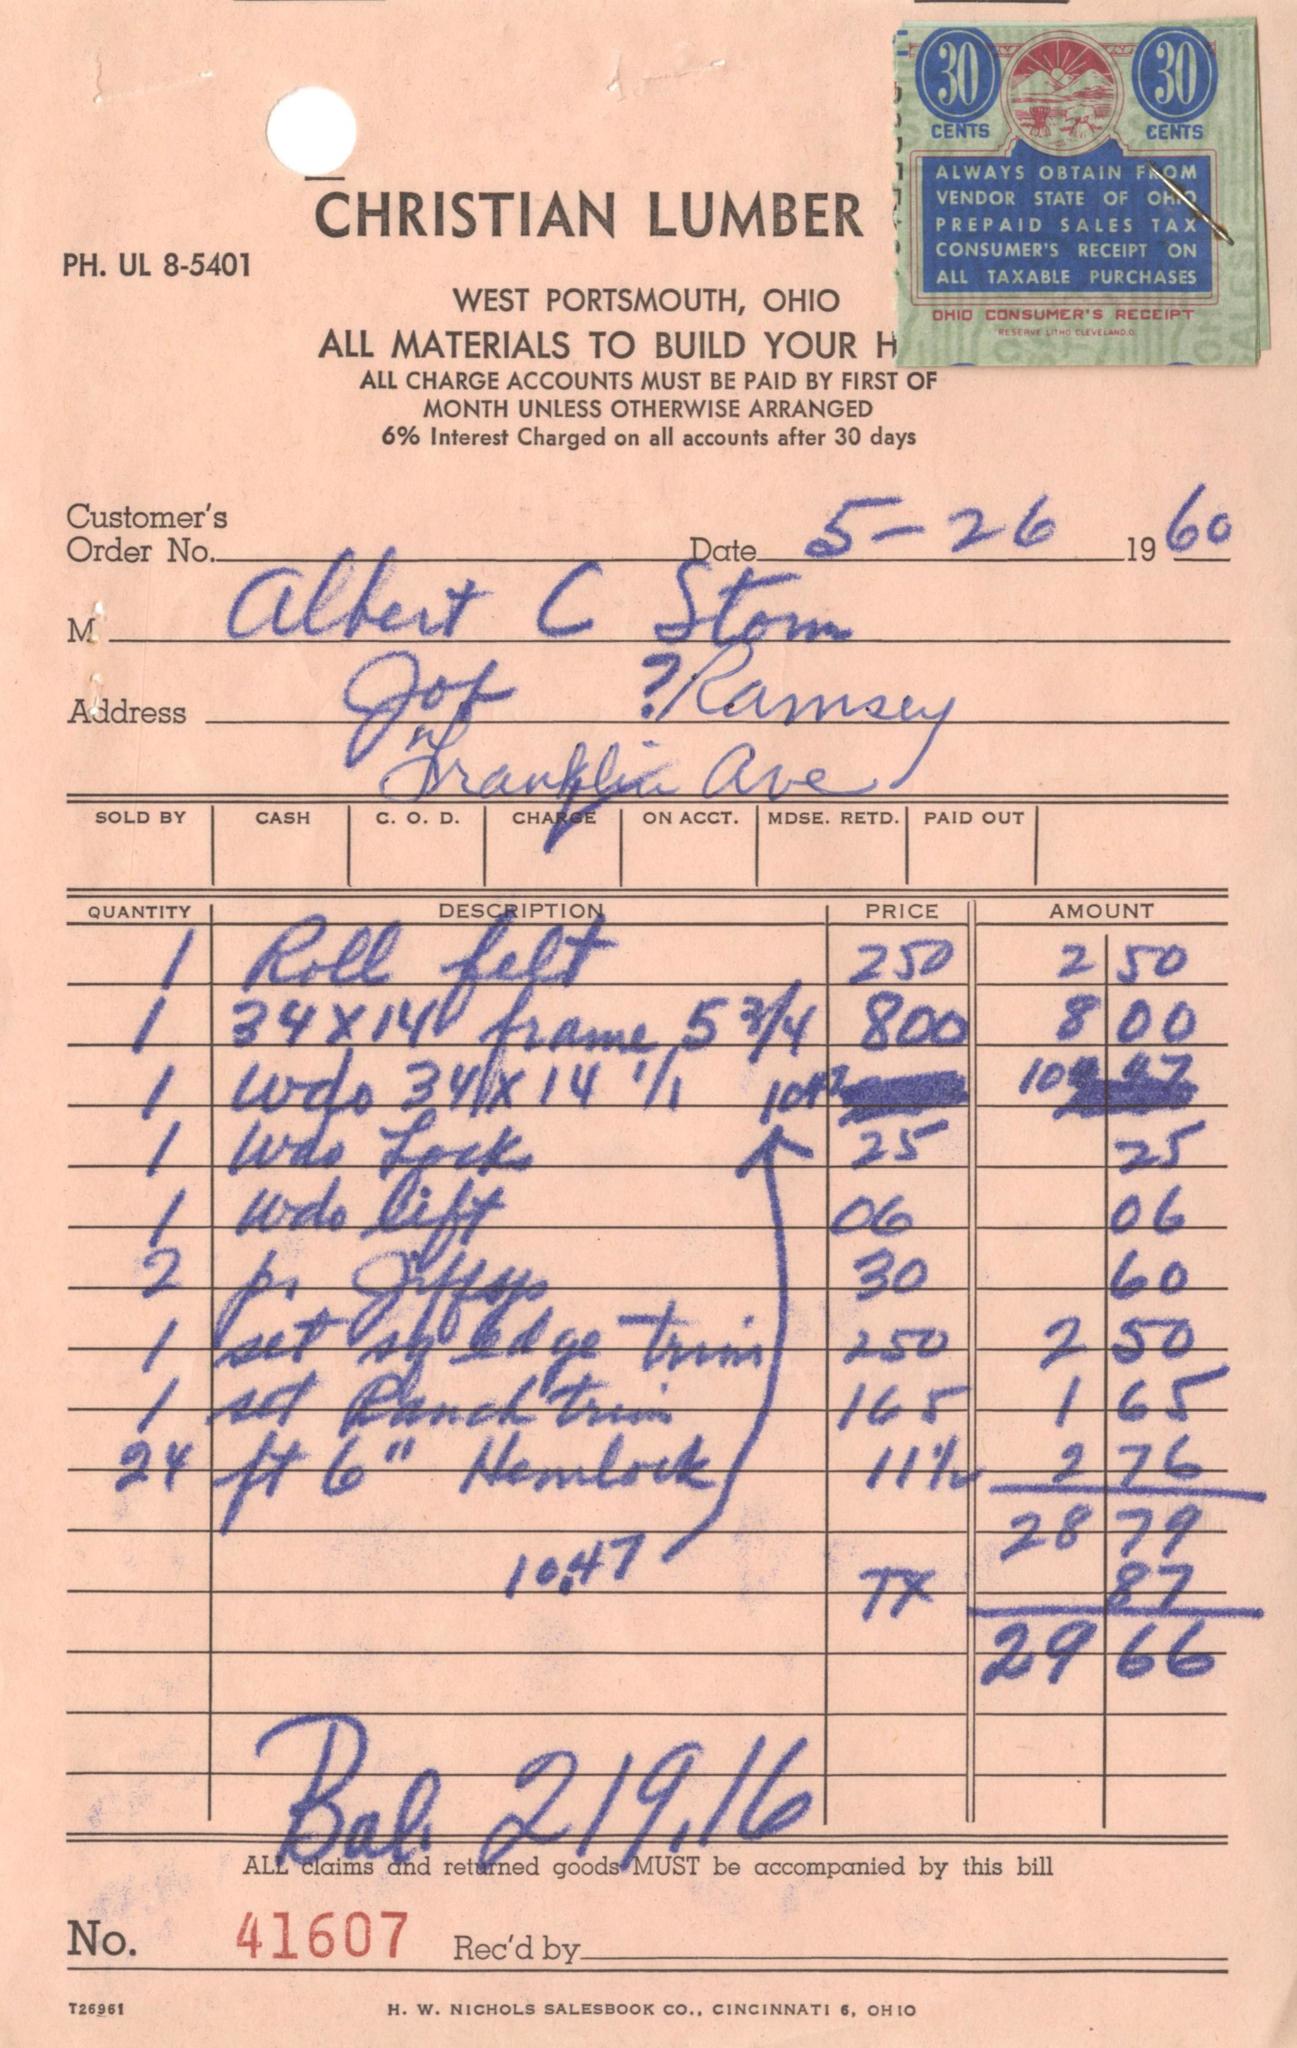 30 CENTS 30 CENTS
ALWAYS OBTAIN FROM
VENDOR STATE OF OHIO
PREPAID SALES TAX
CONSUMER'S RECEIPT ON
ALL TAXABLE PURCHASES
OHIO CONSUMER'S RECEIPT
RESERVE LITHO CLEVELAND,O.
CHRISTIAN LUMBER
PH. UL 8-5401
WEST PORTSMOUTH, OHIO
ALL MATERIALS TO BUILD YOUR H
ALL CHARGE ACCOUNTS MUST BE PAID BY FIRST OF
MONTH UNLESS OTHERWISE ARRANGED
6% Interest Charged on all accounts after 30 days
Customer's
Order No. Date 5-26 1960
M Albert C Storm
Address Job ? Ramsey
Franklin Ave
SOLD BY CASH C. O. D. CHARGE ON ACCT. MDSE. RETD. PAID OUT
QUANTITY DESCRIPTION PRICE AMOUNT
1 Roll felt 250 2 50
1 34X14 frame 5 3/4 800 8 00
1 Wdo 34X14 1/1 1047 10 47
1 Wdo Lock 25 25
1 Wdo lift 06 06
2 pr Jiffys 30 60
1 set sq edge trim 250 2 50
1 set Ranch trim 165 1 65
24 ft 6" Hemlock 11½ 2 76
28 79
10.47 TX 87
29 66
Bal. 219.16
ALL claims and returned goods MUST be accompanied by this bill
No. 41607 Rec'd by
T26961 H. W. NICHOLS SALESBOOK CO., CINCINNATI 6, OHIO